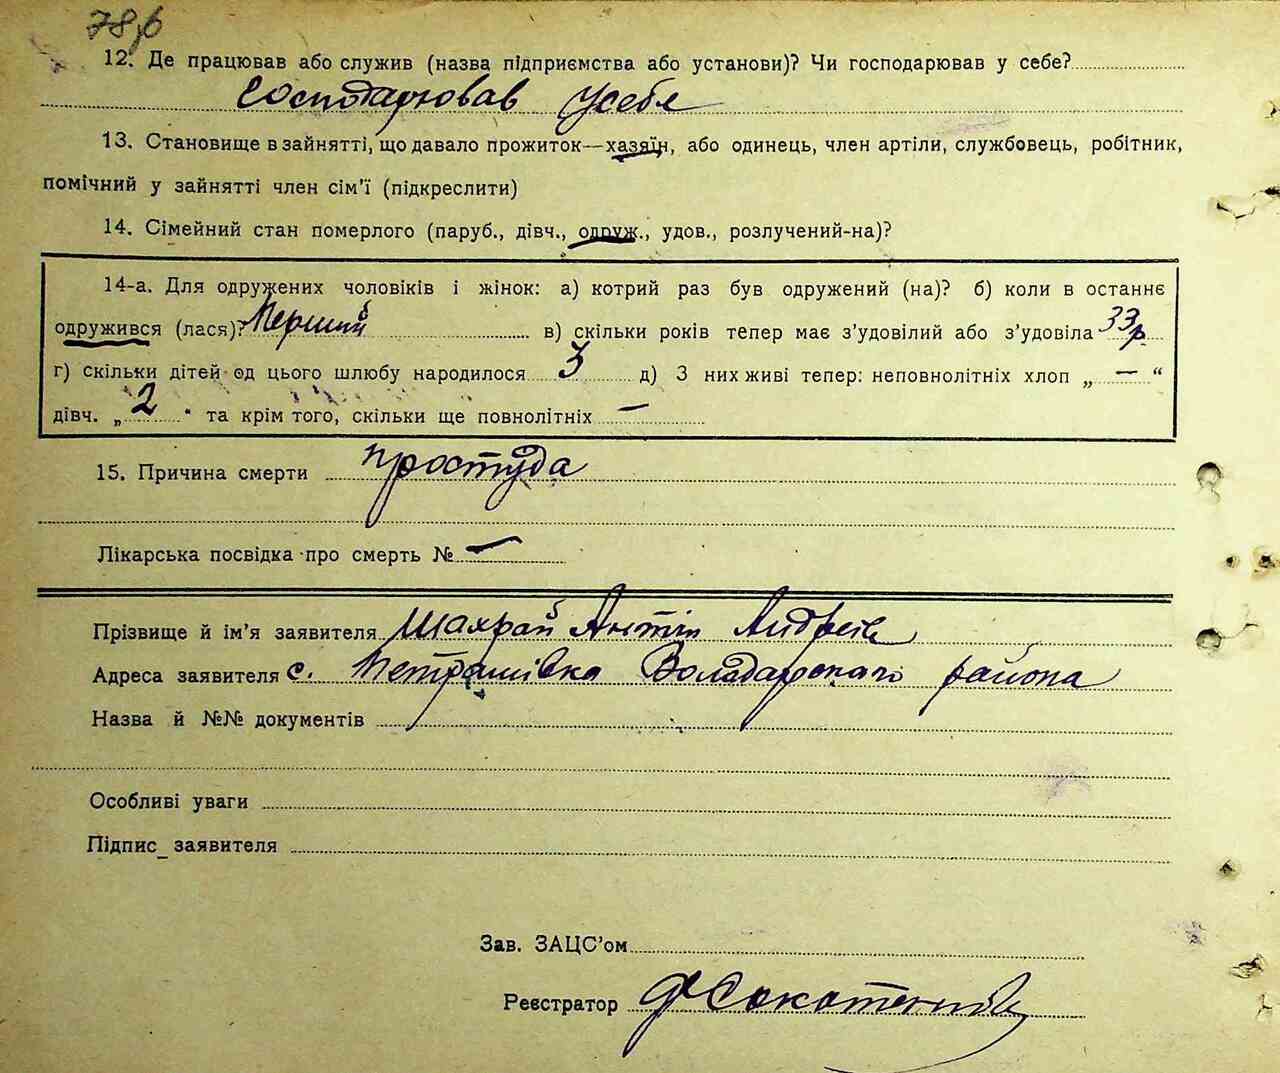 78б
12. Де працював або служив (назва підприємства або установи)? Чи господарював у себе?
Господарював усебе
13. Становище в зайнятті, що давало прожиток—хазяїн, або одинець, член артіли, службовець, робітник,
помічний у зайнятті член сім'ї (підкреслити)
14. Сімейний стан померлого (паруб., дівч., одруж., удов., розлучений-на)?
14-а. Для одружених чоловіків і жінок: а) котрий раз був одружений (на)? б) коли в останнє
одружився (лася)? Перший в) скільки років тепер має з'удовілий або з'удовіла 33 р.
г) скільки дітей од цього шлюбу народилося 3 д) З них живі тепер: неповнолітніх хлоп „ — “
дівч. „ 2 “ та крім того, скільки ще повнолітніх —
15. Причина смерти простуда
Лікарська посвідка про смерть № —
Прізвище й ім'я заявителя Шахрай Антін Андреів
Адреса заявителя с. Петрашівка Володарського района
Назва й №№ документів
Особливі уваги
Підпис заявителя
Зав. ЗАЦС'ом
Реєстратор